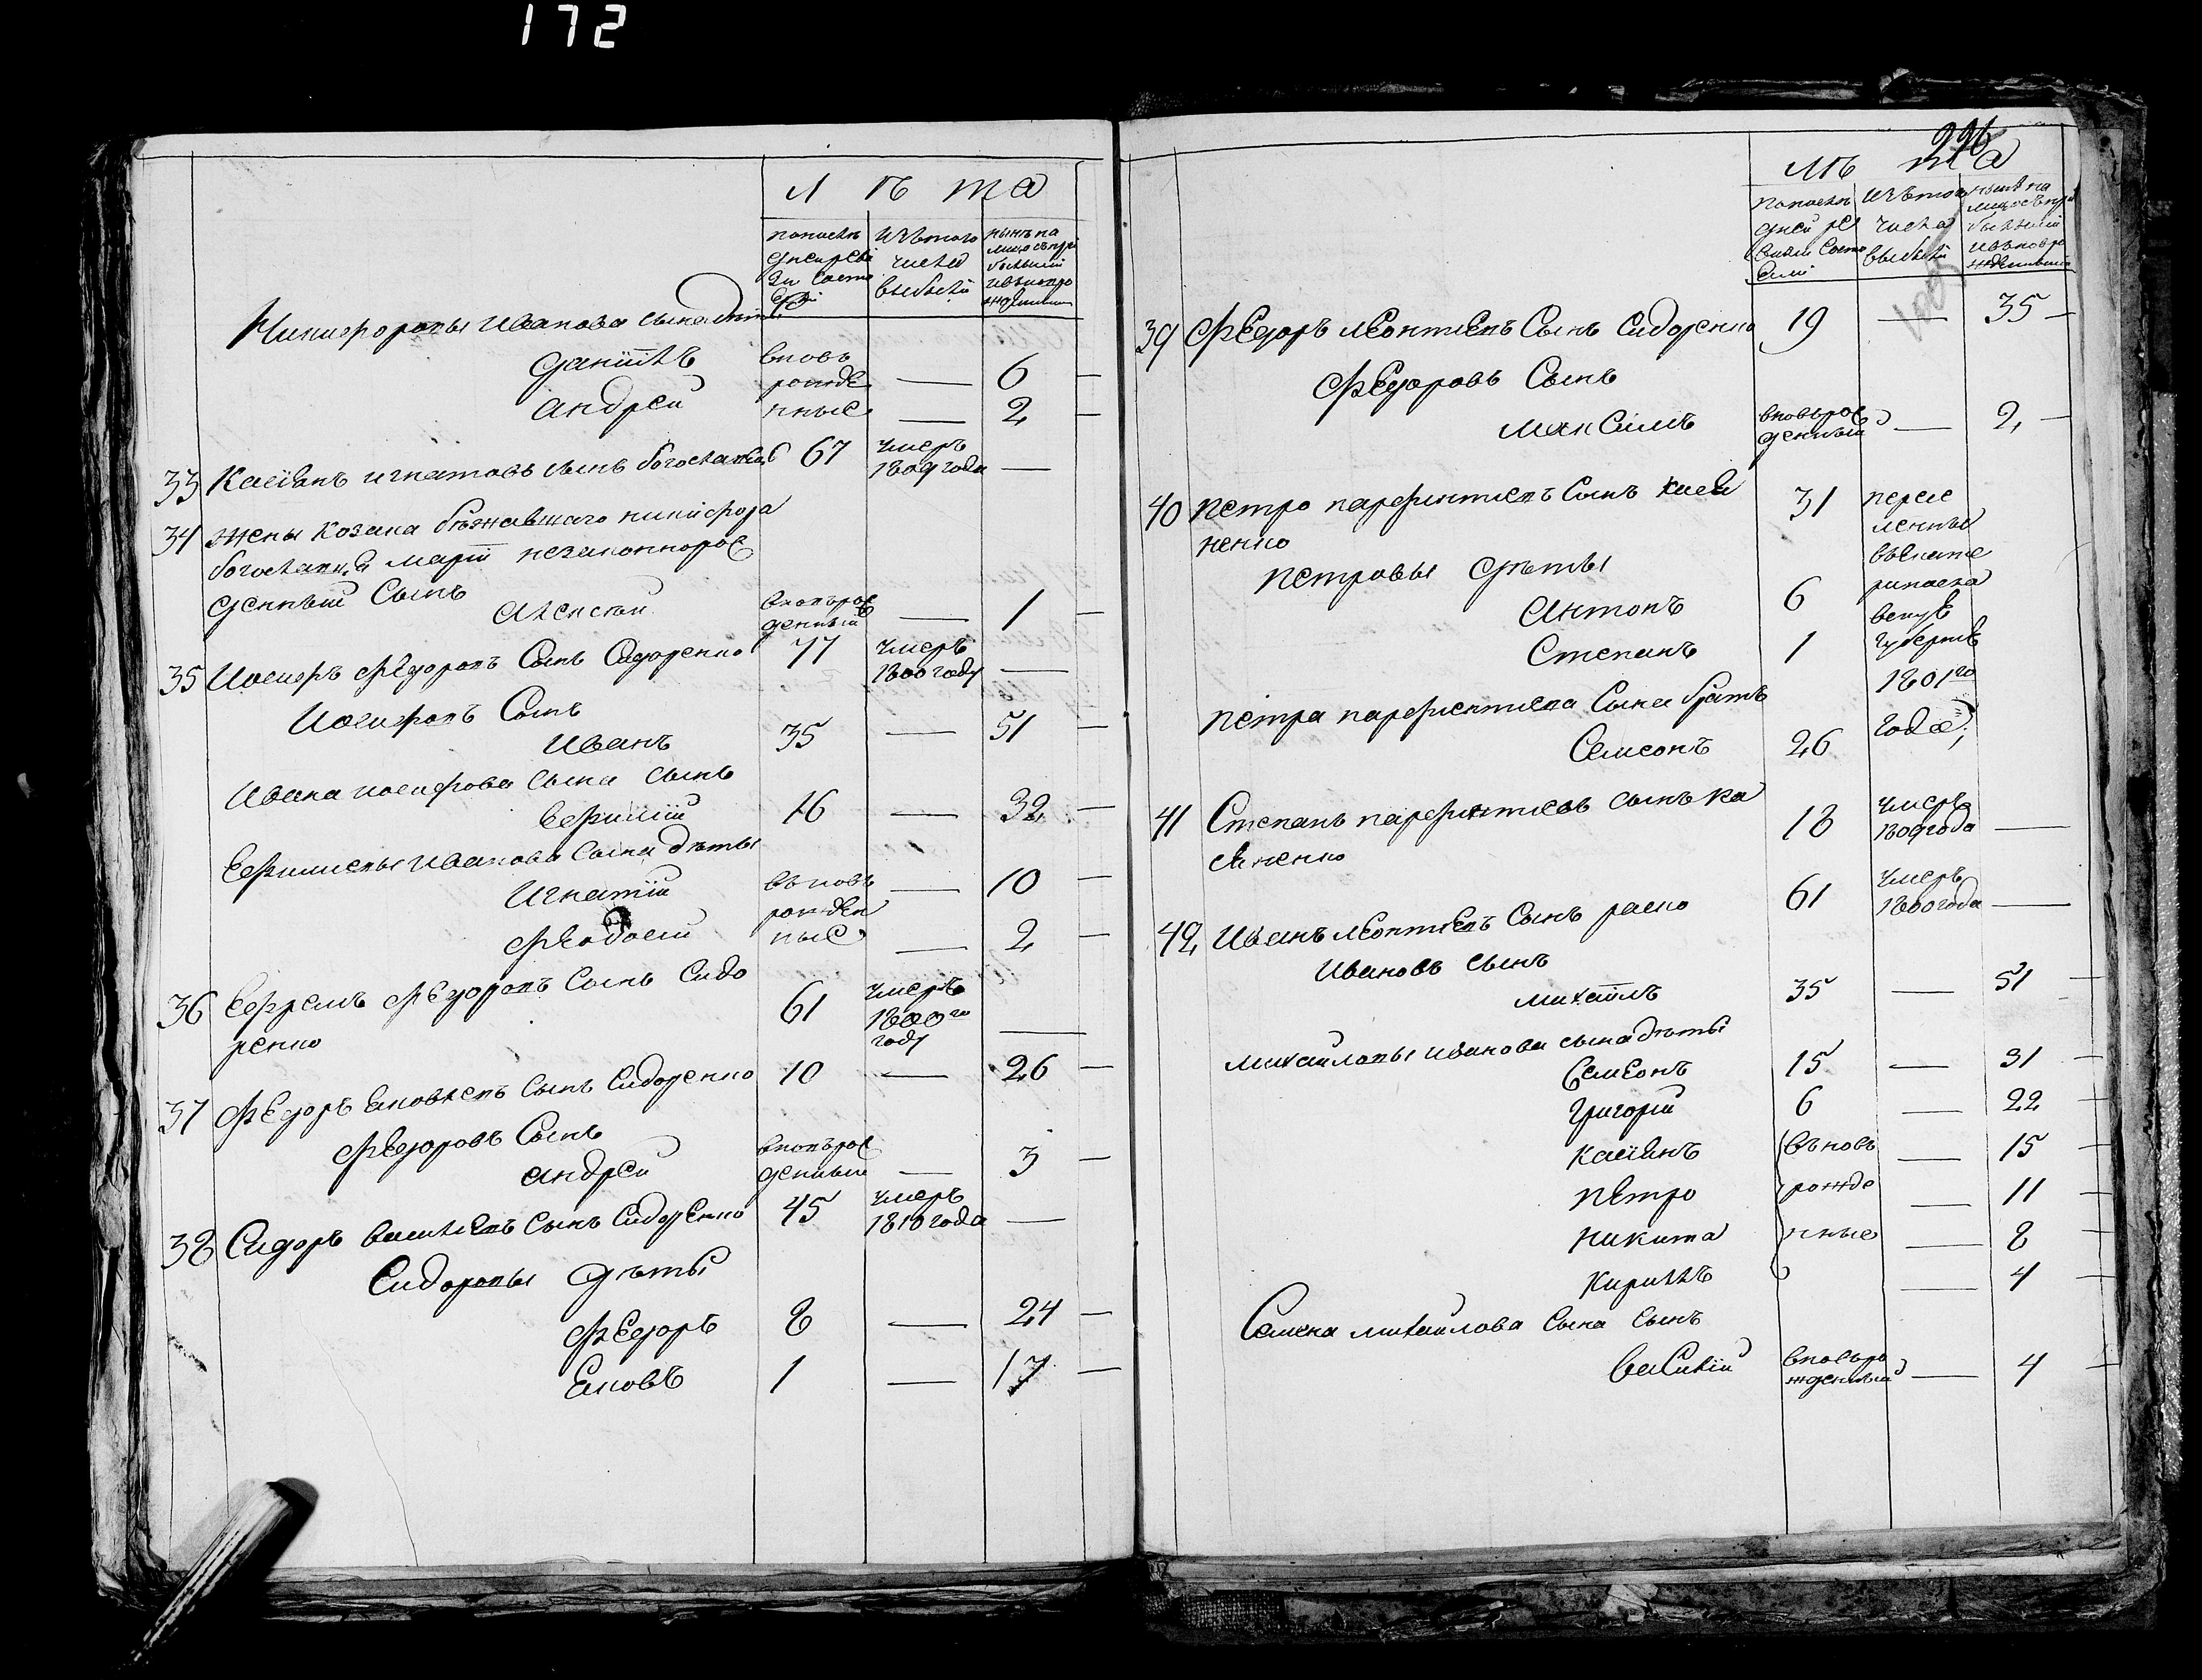 172
Л ѣ та
попослѣ
дней реви
зіи состо
яло
изътого
числа
выбыли
нынѣ на
лицо съпри
былыми
ивновьро
жденными
Никифоровы иванова сына дѣти
даніілъ вновь — 6
рожде
андрей нные — 2
33 Касіянъ игнатовъ сынъ богославскій 67 умеръ
1809 года —
34 жены козака бѣжавшаго никифора
марііи незаконнорож
денный сынъ
алексѣй вновьрож
денный — 1
35 Иосифъ федоровъ Сынъ Сидоренко 77 умеръ
1800 году —
Иосифовъ Сынъ
Иванъ 35 — 51
Ивана иосифова сына сынъ
Ефимій 16 — 32
Ефимиевы Иванова сына дѣти
Игнатій въновь — 10
рожден
Феодосій ные — 2
36 Ефремъ Федоровъ Сынъ Сидо
ренко 61 умеръ
1800го
году —
37 Федоръ Яковлевъ сынъ Сидоренко 10 — 26
Федоровъ Сынъ
андрей вновьрож
денный — 3
38 Сидоръ васильевъ сынъ Сидоренко 45 умеръ
1810 года —
Сидоровы дѣти
Федоръ 8 — 24
Яковъ 1 — 17
226
Лѣ та
попослѣ
дней ре
визіи состо
яли
изътого
числа
выбыли
нынѣ на
лицо съпри
былыми
ивновьро
жденными
39 Федоръ леонтиевъ Сынъ Сидоренко 19 — 35
Федоровъ Сынъ
максимъ вновьрож
денный — 2
40 петро парфентиевъ Сынъ Касія
ненко 31 пересе
ленны
въекате
ринosла
вскую
губернію
1801го
года
петровы дѣти
Антонъ 6
Степанъ 1
петра парфентиева Сына братъ
Самсонъ 26
41 Степанъ парфентиевъ сынъ Ка
сіяненко 18 умеръ
1809 года —
42 Иванъ леонтиевъ Сынъ раско 61 умеръ
1800 года —
Ивановъ сынъ
михаилъ 35 — 51
михаиловы иванова сына дѣти
Семеонъ 15 — 31
григорій 6 — 22
касіянъ въновь — 15
петро рожде — 11
никита нные — 8
кирилъ — 4
Семена михайлова сына сынъ
василій вновьро
жденный — 4